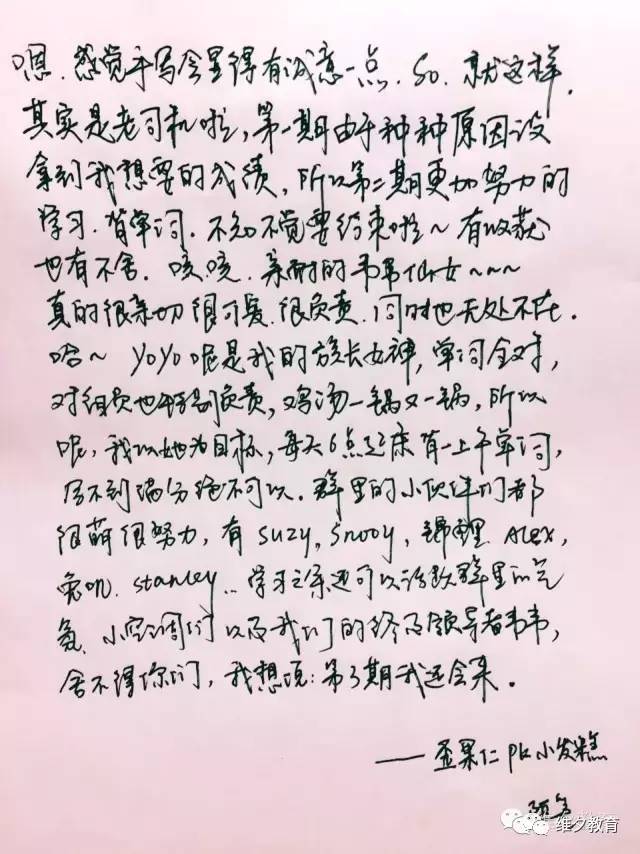 嗯.感觉手写会显得有诚意一点.So.就这样.
其实是老司机啦,第一期由于种种原因没
拿到我想要的成绩,所以第二期更加努力的
学习.背单词.不知不觉要结束啦~有收获
也有不舍.咳咳.亲耐的韦韦仙女~~~
真的很亲切很可爱.很负责.同时也无处不在.
哈~ YOYO呢是我的族长女神,单词全对,
对组员也特别负责,鸡汤一锅又一锅,所以
呢,我以她为目标,每天6点起床背一上午单词,
拿不到满分绝不可以.群里的小伙伴们都
很萌很努力,有suzy,Snooy,锦鲤.Alex,
stanley..学习之余还可以活跃群里的气
氛.小空调们以及我们的终极领导者韦韦,
舍不得你们,我想说:第3期我还会来.
——歪果仁PK小发糕
维夕教育